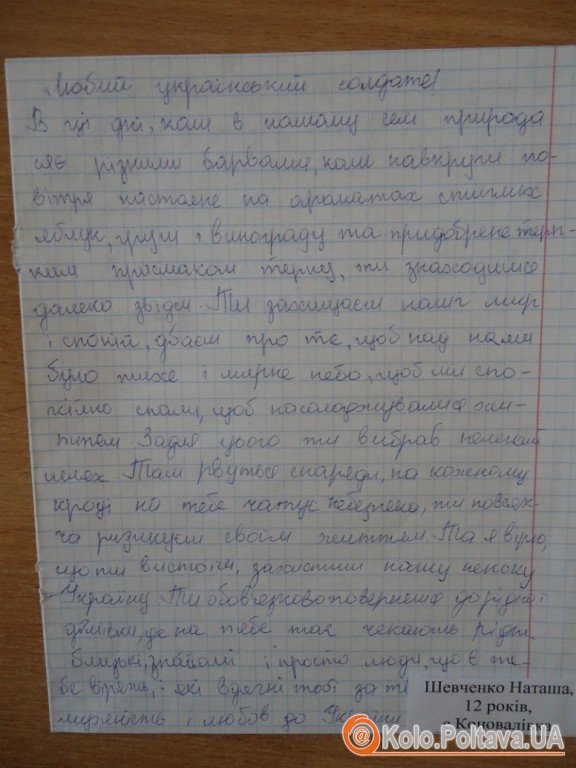 Любий український солдате!
В ці дні, коли в нашому селі природа
сяє різними барвами, коли навкруги по-
вітря настояне на ароматах стиглих
яблук, груш і винограду та приправлене терп-
ким присмаком терну, ти знаходишся
далеко звідси. Ти захищаєш наш мир
і спокій, дбаєш про те, щоб над нами
було тихе і мирне небо, щоб ми спо-
кійно спали, щоб насолоджувалися жит-
тям. Задля цього ти вибрав нелегкий
шлях. Там рвуться снаряди, на кожному
кроці на тебе чатує небезпека, ти повсяк-
час ризикуєш своїм життям. Та я вірю,
що ти вистоїш, захистиш нашу неньку
Україну. Ти обов'язково повернешся до рідної
домівки, де на тебе так чекають рідні,
близькі, знайомі і просто люди, що в те-
бе вірять, і які вдячні тобі за
мужність і любов до України
Шевченко Наташа,
12 років,
с.Коновалівка
@Kolo.Poltava.UA